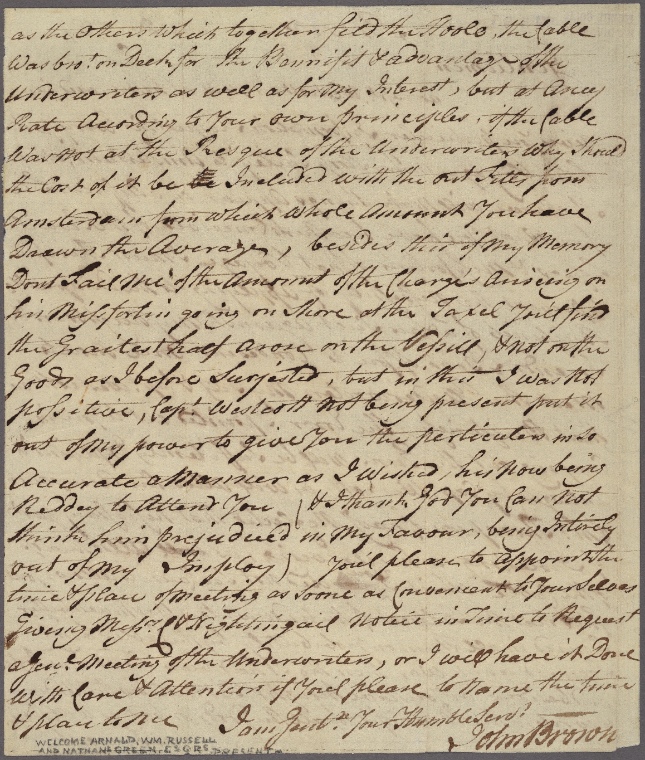 as the others which together fild the Hoole, the Cable
Was bro.t on Deck for The Bennifit & advantage of the
Underwriters as well as for My Interest, but at Aney
Rate According to Your own principles, if the Cable
Was Not at the Resque of the Underwriters Why Should
the Cost of it be be Included with the out Fitts from
Amsterdam from which whole Amount You have
Drawn the Average, besides this if My Memory
Dont Fail Me of the Amount of the Charges Ariseing on
his Missfortin going on Shore at the Taxel You'l find
the Graitest half arose on the Vessill, & not on the
Goods as I before Surjested, but in this I was Not
possitive, Cap.t Westcott Not being present put it
out of My power to give You the perticulers in so
Accurate a Manner as I Wished, his Now being
Reddey to Attend You (& I thank God You Can Not
think him prejudiced in My Favour, being Intirely
out of My Imploy) You'l please to appoint the
time & place of Meeting as soone as Convenient to Your Selves
Giving Mess.rs C & Nightingail Notice in Time to Request
a Gen.l Meeting of the Underwriters, or I will have it Done
With Care & Attention if You'l please to Name the time
& place to Me I am Your Humble Serv.t
John Brown
WELCOME ARNALD, WM. RUSSELL
AND NATHAN GREEN, ESQRS. PRESENT